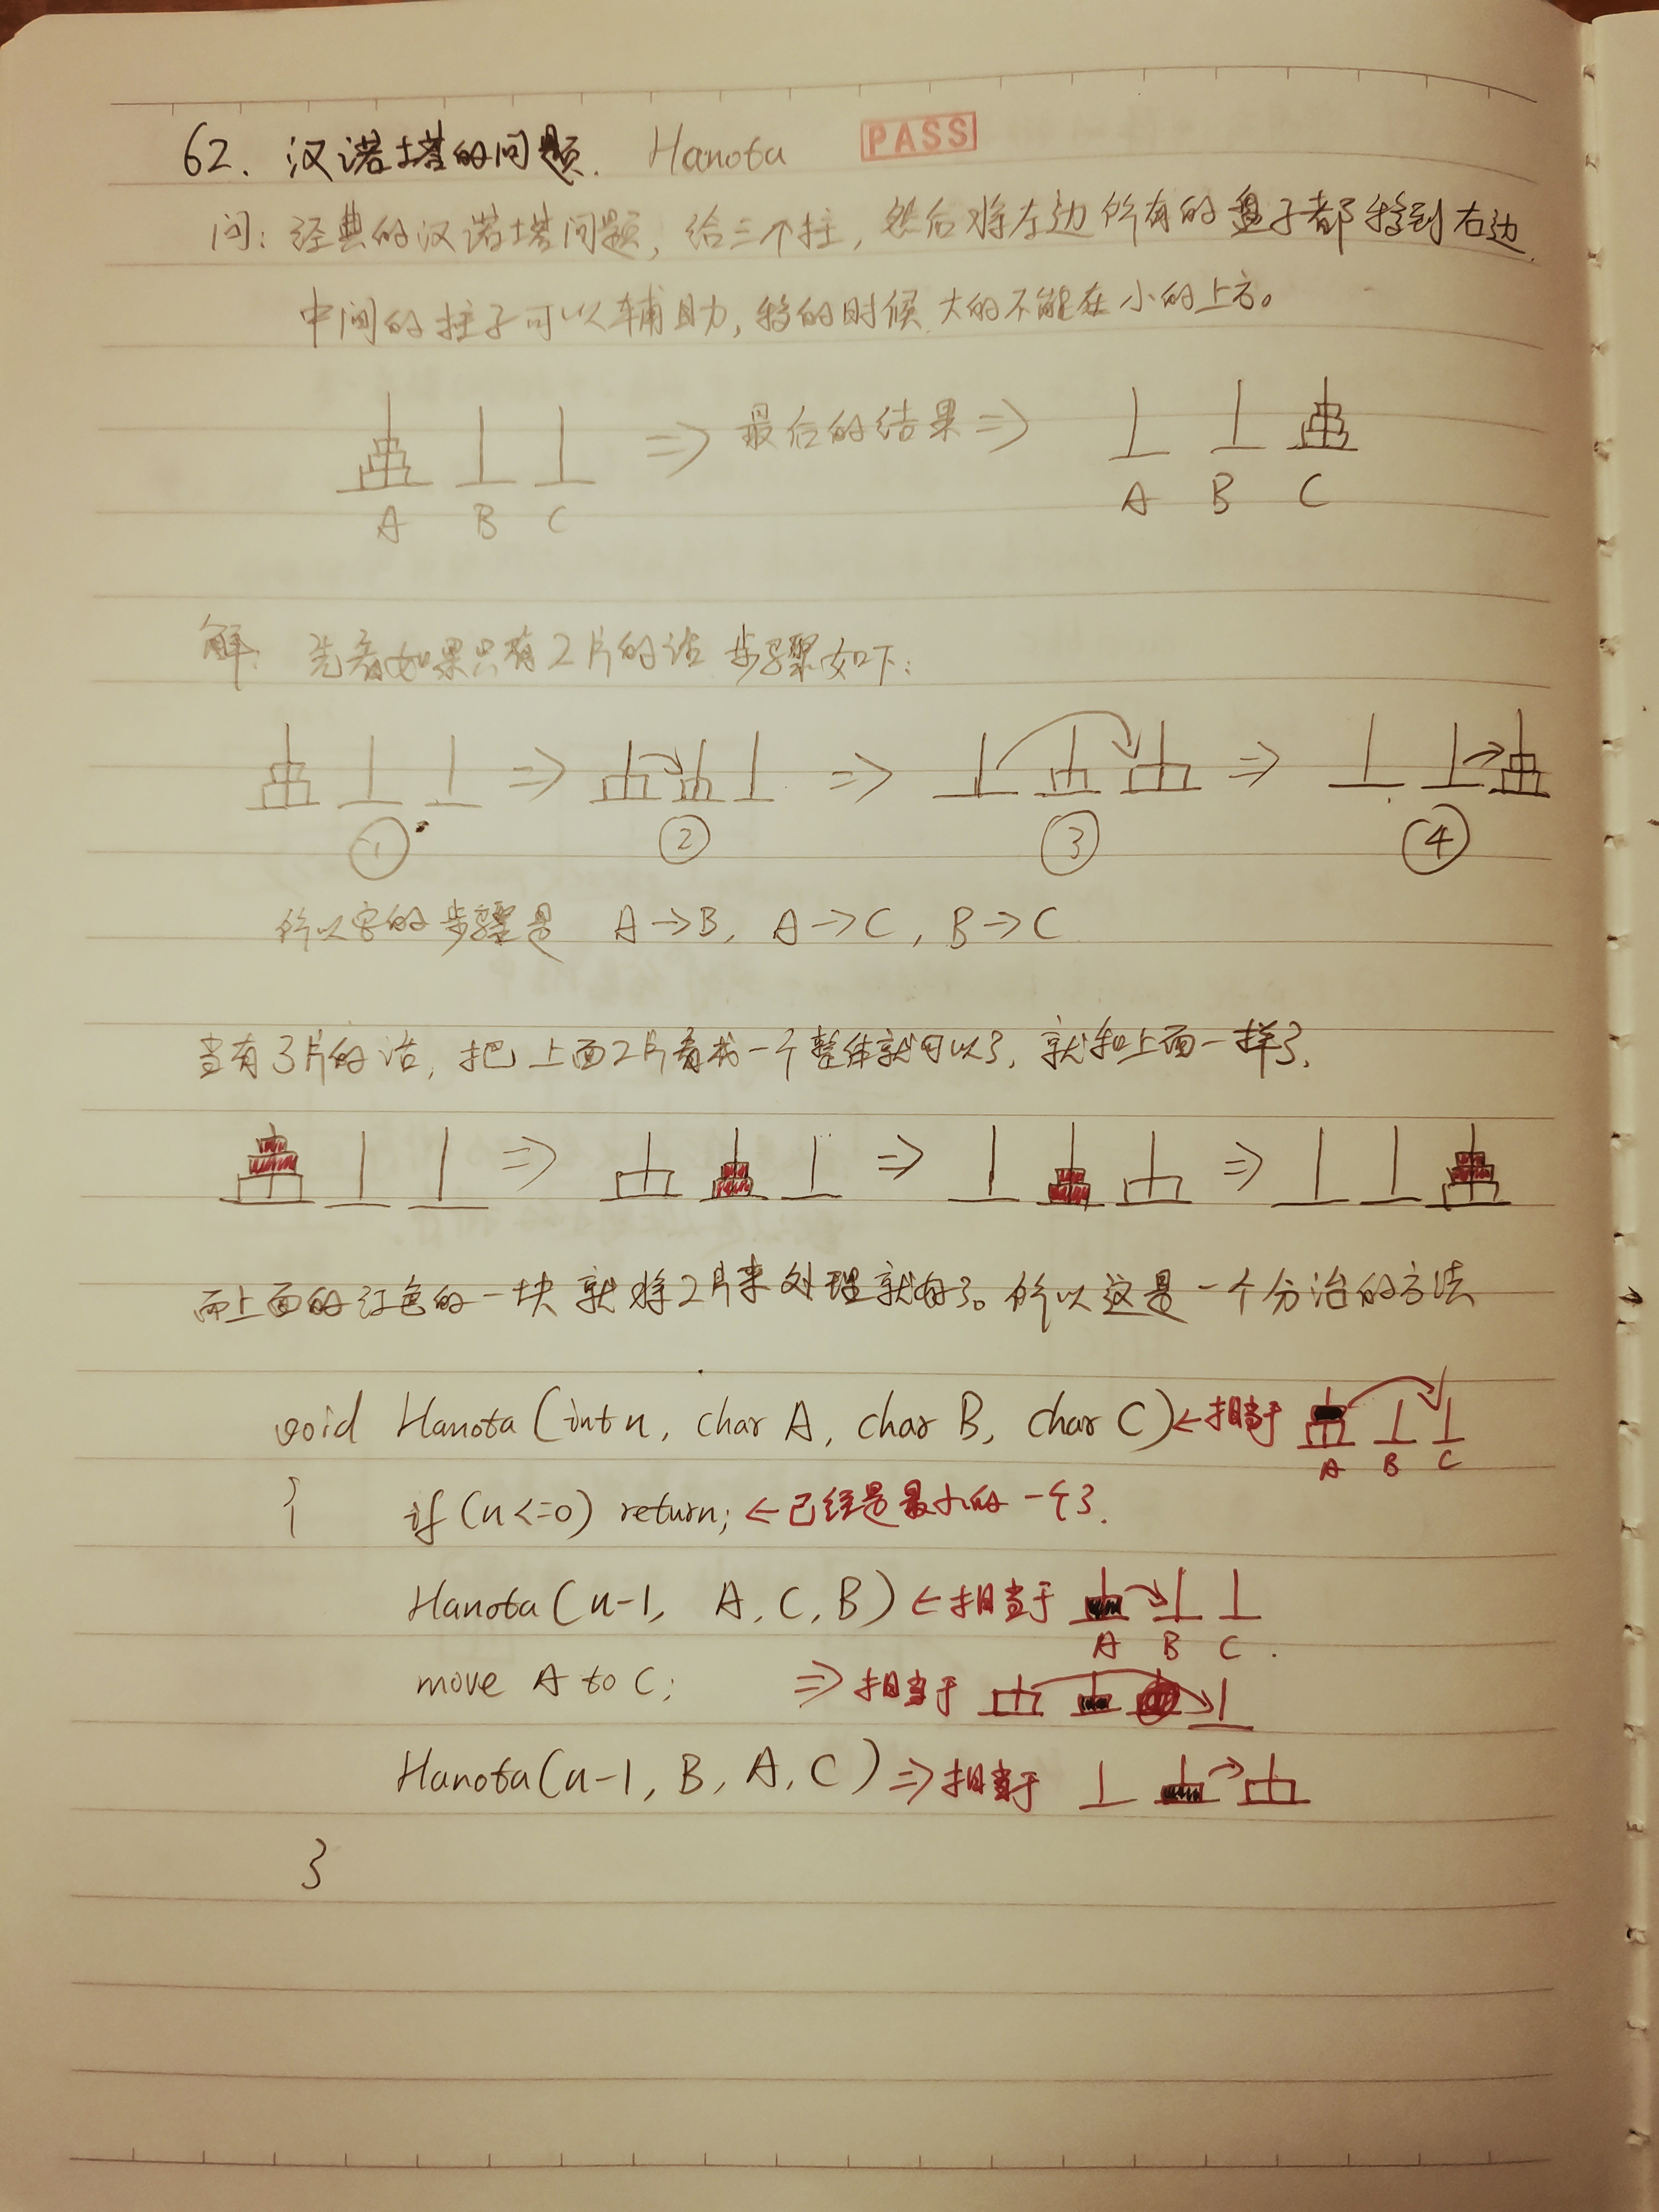 62. 汉诺塔的问题. Hanota PASS
问: 经典的汉诺塔问题, 给三个柱, 然后将左边所有的盘子都移到右边.
中间的柱子可以辅助, 移的时候 大的不能在小的上方。
⇒ 最后的结果 ⇒
A B C A B C
解: 先看如果只有2片的话 步骤如下:
⇒ ⇒ ⇒
① ② ③ ④
所以它的步骤是 A→B, A→C, B→C
当有3片的话, 把上面2片看成一个整体就可以了, 就和上面一样了.
⇒ ⇒ ⇒
而上面的红色的一块就将2片来处理就好了。所以这是一个分治的方法
void Hanota (int n, char A, char B, char C) ← 相当于
A B C
{ if (n <= 0) return; ← 已经是最小的一个了.
Hanota (n-1, A, C, B) ← 相当于
A B C
move A to C; ⇒ 相当于
Hanota (n-1, B, A, C) ⇒ 相当于
}